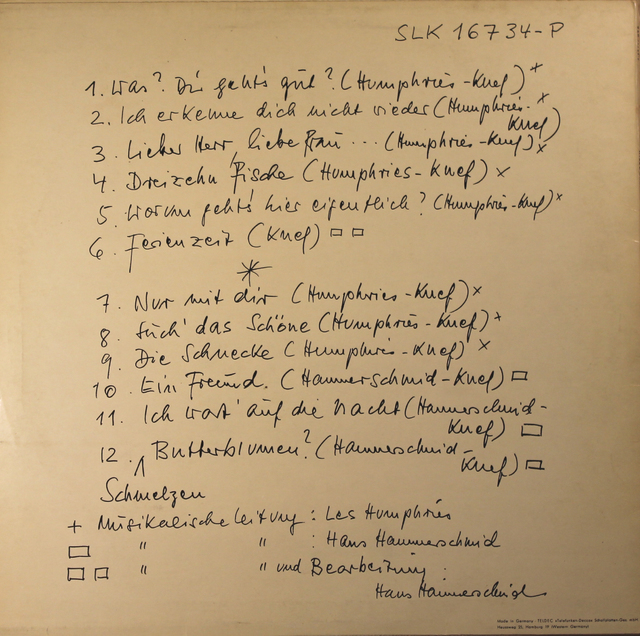 SLK 16734-P
1. Was? Dir geht's gut? (Humphries-Knef) x
2. Ich erkenne dich nicht wieder (Humphries- x
Knef)
3. Lieber Herr, liebe Frau ... (Humphries-Knef) x
4. Dreizehn Fische (Humphries-Knef) x
5. Worum geht's hier eigentlich? (Humphries-Knef) x
6. Ferienzeit (Knef) □ □
7. Nur mit dir (Humphries-Knef) x
8. Such' das Schöne (Humphries-Knef) x
9. Die Schnecke (Humphries-Knef) x
10. Ein Freund. (Hammerschmid-Knef) □
11. Ich wart' auf die Nacht (Hammerschmid-
Knef) □
12. Butterblumen? (Hammerschmid-
Knef) □
Schmelzen
+ Musikalische Leitung: Les Humphries
□ " " : Hans Hammerschmid
□ □ " " und Bearbeitung:
Hans Hammerschmid